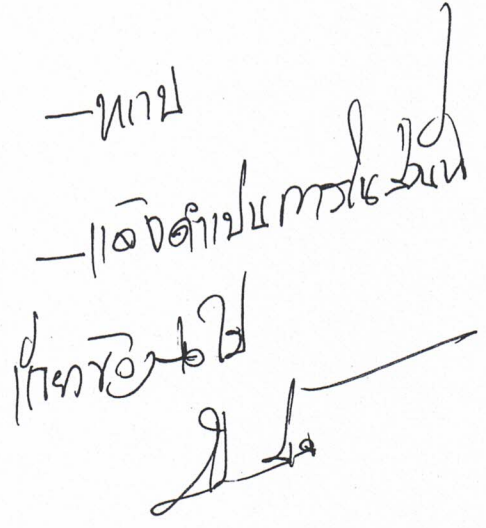 - ทราบ
- แจ้งดำเนินการในส่วนที่
เกี่ยวข้องต่อไป